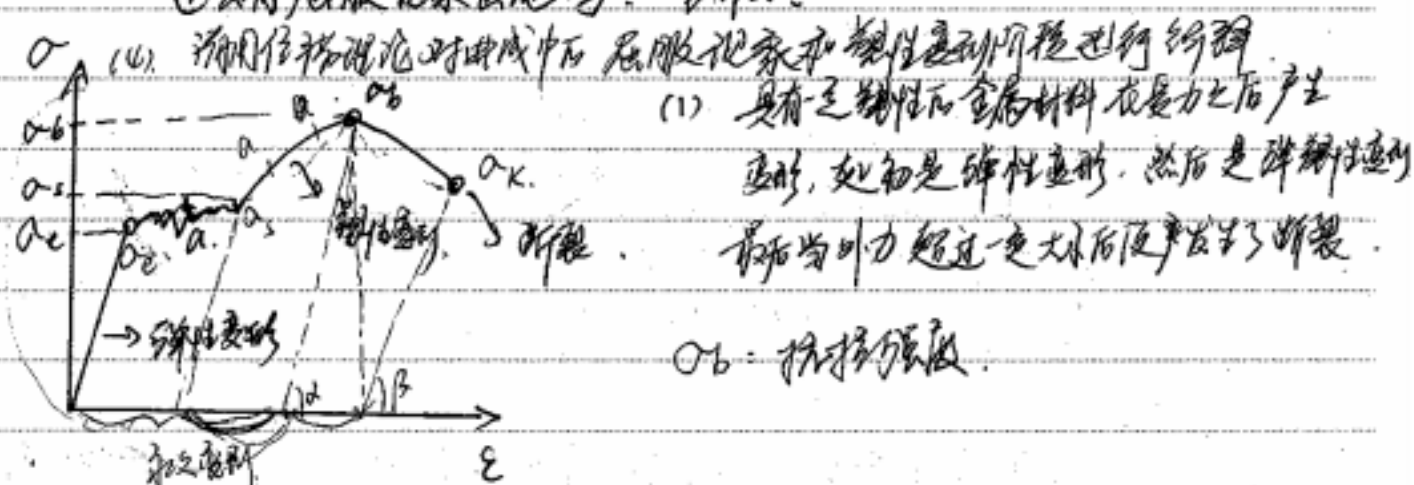 (4). 请用位错理论对曲线中的屈服现象和塑性变形阶段进行解释.
(1) 具有一定塑性的金属材料在受力之后产生
变形, 起初是弹性变形. 然后是弹塑性变形
最后当外力超过一定大小后便产发生了断裂.
σb: 抗拉强度.
σ
σb
σs
σe
σb
σk.
σs
σe.
塑性变形
断裂.
→ 弹性变形
α
β
永久变形
ε